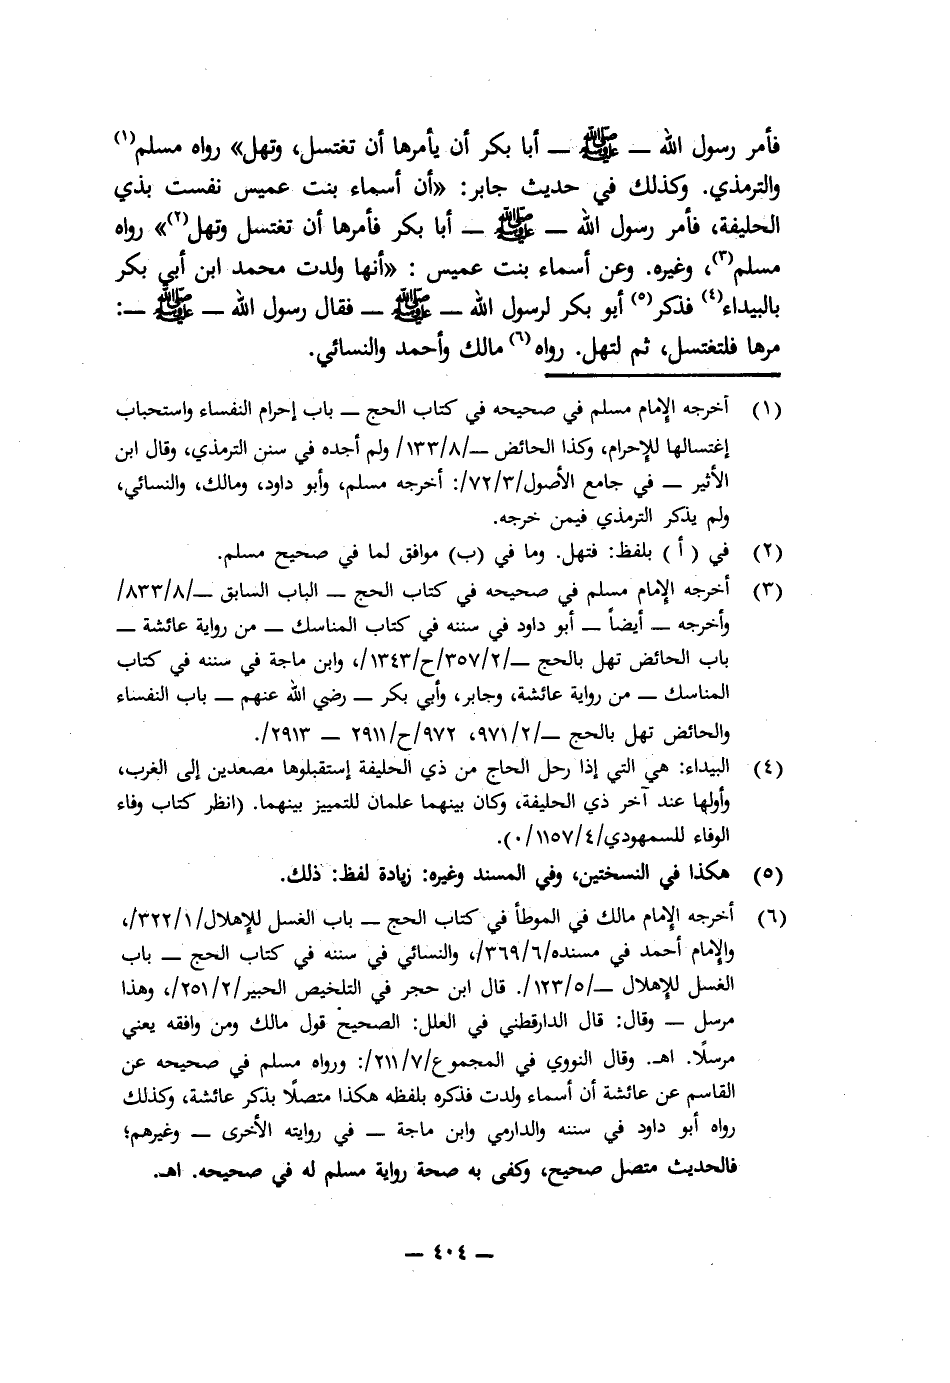 فأمر رسول الله — ﷺ — أبا بكر أن يأمرها أن تغتسل، وتهل» رواه مسلم(١)
والترمذي. وكذلك في حديث جابر: «أن أسماء بنت عميس نفست بذي
الحليفة، فأمر رسول الله — ﷺ — أبا بكر فأمرها أن تغتسل وتهل(٢)» رواه
مسلم(٣)، وغيره. وعن أسماء بنت عميس : «أنها ولدت محمد ابن أبي بكر
بالبيداء(٤) فذكر(٥) أبو بكر لرسول الله — ﷺ — فقال رسول الله — ﷺ —:
مرها فلتغتسل، ثم لتهل. رواه(٦) مالك وأحمد والنسائي.
(١) أخرجه الإمام مسلم في صحيحه في كتاب الحج — باب إحرام النفساء واستحباب
إغتسالها للإحرام، وكذا الحائض —/١٣٣/٨/ ولم أجده في سنن الترمذي، وقال ابن
الأثير — في جامع الأصول/٧٢/٣/: أخرجه مسلم، وأبو داود، ومالك، والنسائي،
ولم يذكر الترمذي فيمن خرجه.
(٢) في ( أ ) بلفظ: فتهل. وما في (ب) موافق لما في صحيح مسلم.
(٣) أخرجه الإمام مسلم في صحيحه في كتاب الحج — الباب السابق —/٨٣٣/٨/
وأخرجه — أيضاً — أبو داود في سننه في كتاب المناسك — من رواية عائشة —
باب الحائض تهل بالحج —/٣٥٧/٢/ح/١٣٤٣/، وابن ماجة في سننه في كتاب
المناسك — من رواية عائشة، وجابر، وأبي بكر — رضي الله عنهم — باب النفساء
والحائض تهل بالحج —/٩٧١/٢، ٩٧٢/ح/٢٩١١ — ٢٩١٣/.
(٤) البيداء: هي التي إذا رحل الحاج من ذي الحليفة إستقبلوها مصعدين إلى الغرب،
وأولها عند آخر ذي الحليفة، وكان بينهما علمان للتمييز بينهما. (انظر كتاب وفاء
الوفاء للسمهودي/١١٥٧/٤/٠).
(٥) هكذا في النسختين، وفي المسند وغيره: زيادة لفظ: ذلك.
(٦) أخرجه الإمام مالك في الموطأ في كتاب الحج — باب الغسل للإهلال/٣٢٢/١/،
والإمام أحمد في مسنده/٣٦٩/٦/، والنسائي في سننه في كتاب الحج — باب
الغسل للإهلال —/١٢٣/٥/. قال ابن حجر في التلخيص الحبير/٢٥١/٢/، وهذا
مرسل — وقال: قال الدارقطني في العلل: الصحيح قول مالك ومن وافقه يعني
مرسلًا. اهـ. وقال النووي في المجموع/٢١١/٧/: ورواه مسلم في صحيحه عن
القاسم عن عائشة أن أسماء ولدت فذكره بلفظه هكذا متصلًا بذكر عائشة، وكذلك
رواه أبو داود في سننه والدارمي وابن ماجة — في روايته الأخرى — وغيرهم؛
فالحديث متصل صحيح، وكفى به صحة رواية مسلم له في صحيحه. اهـ.
— ٤٠٤ —